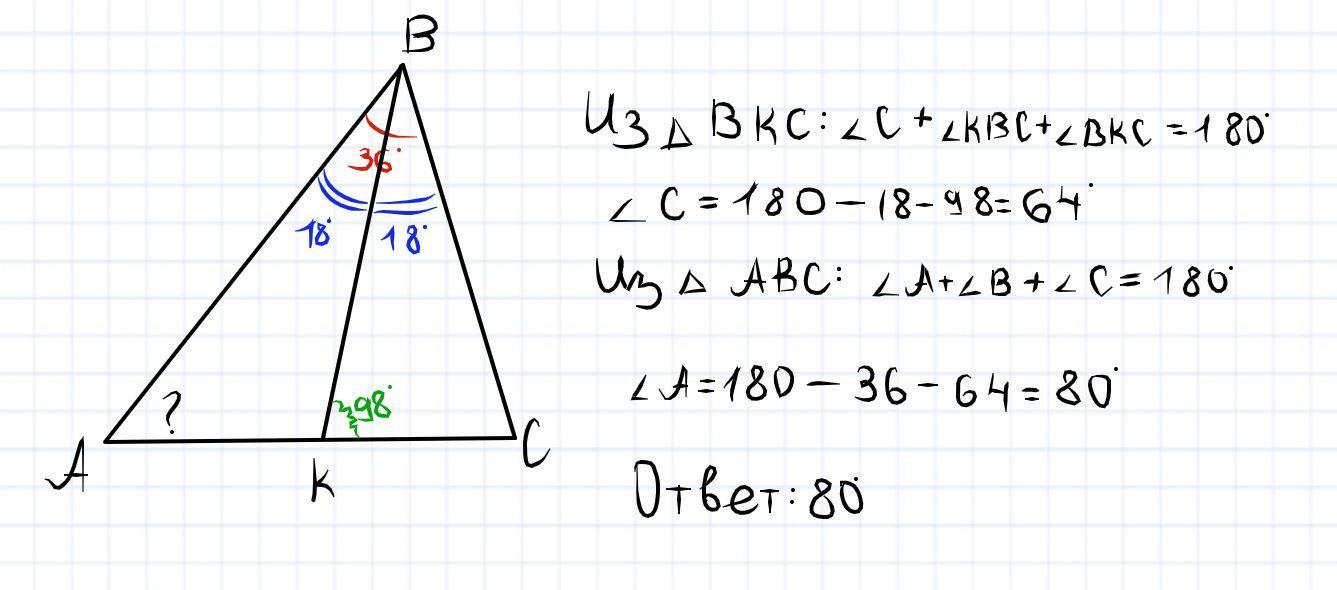 B
36°
18° 18°
? 98°
A K C
Из △ BKC: ∠C + ∠KBC + ∠BKC = 180°
∠C = 180 - 18 - 98 = 64°
Из △ ABC: ∠A + ∠B + ∠C = 180°
∠A = 180 - 36 - 64 = 80°
Ответ: 80